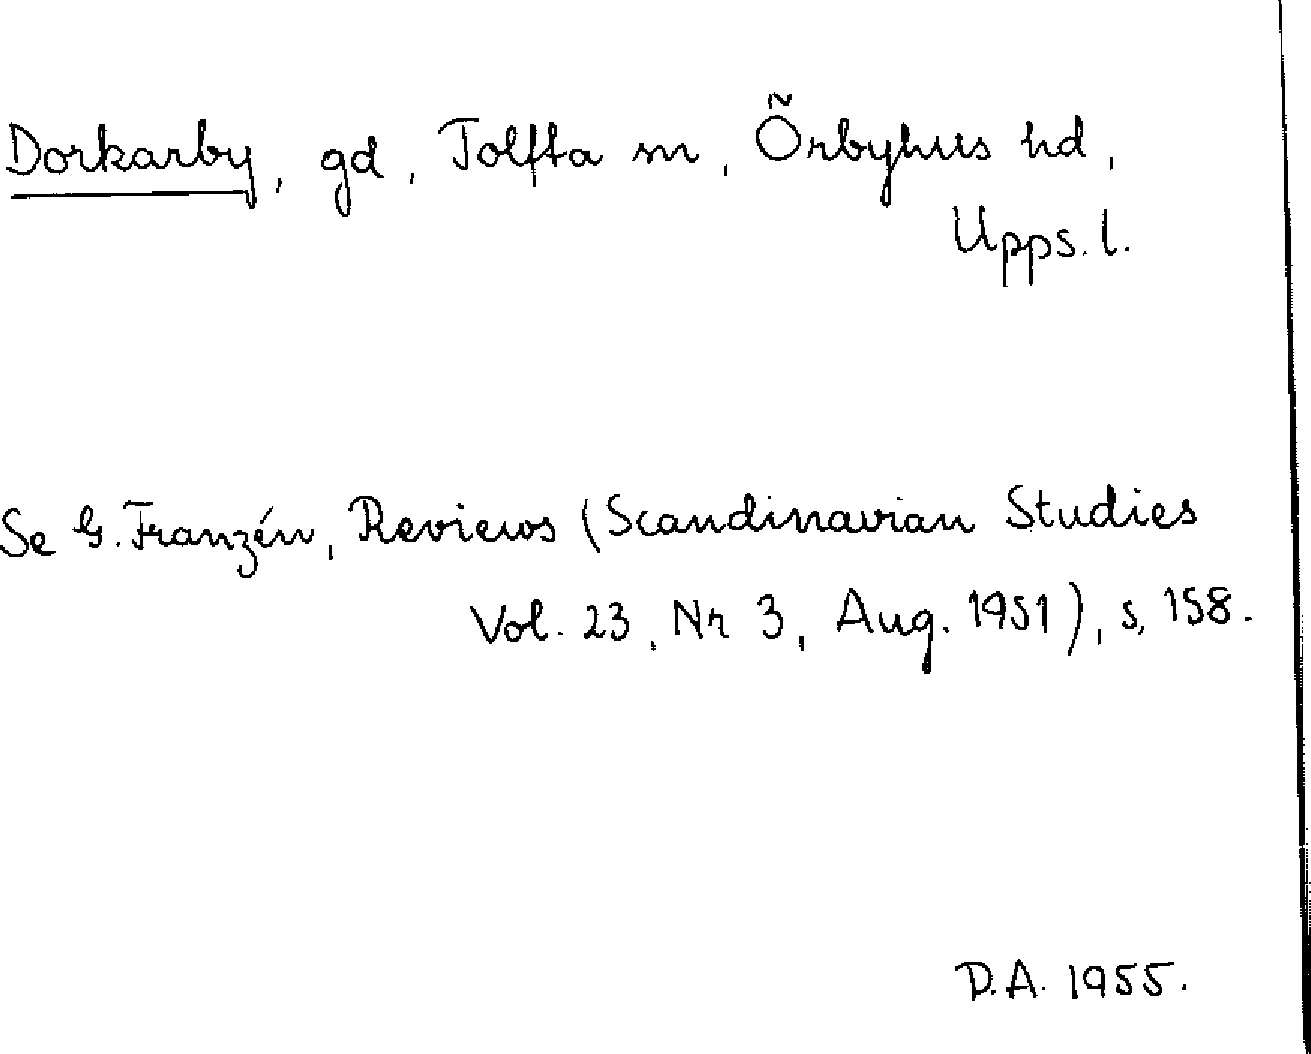 Dorkarby, gd, Tolfta sn, Örbyhus hd,
Upps. l.
Se G. Franzén, Reviews (Scandinavian Studies
Vol. 23, Nr 3, Aug. 1951), s. 158.
D.A. 1955.